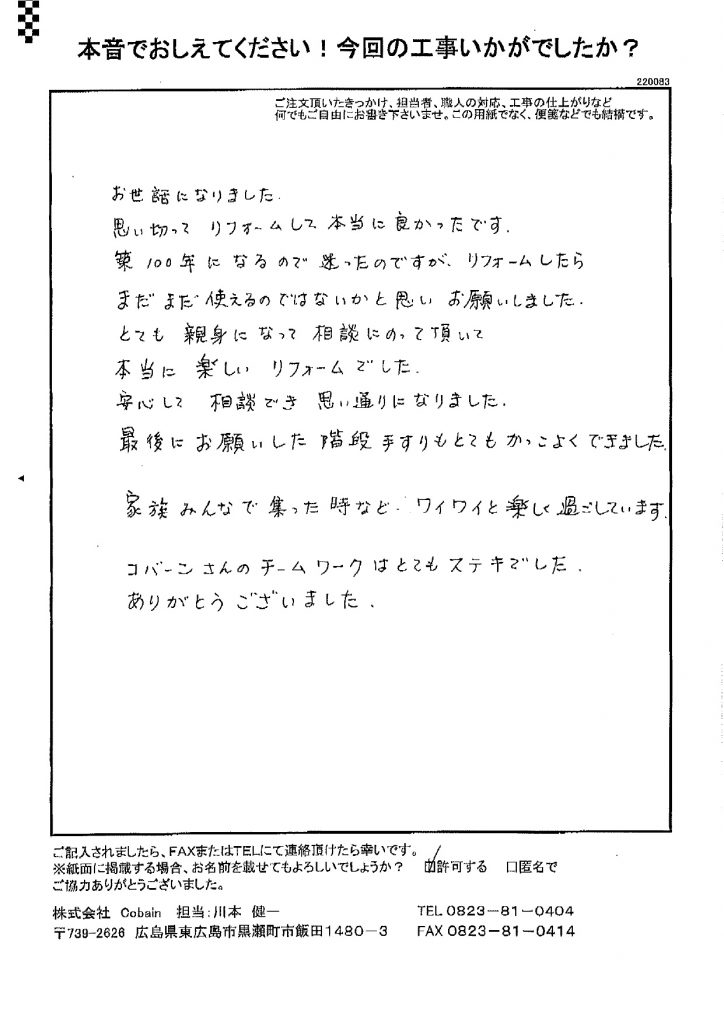 本音でおしえてください！今回の工事いかがでしたか？
220083
ご注文頂いたきっかけ、担当者、職人の対応、工事の仕上がりなど
何でもご自由にお書き下さいませ。この用紙でなく、便箋などでも結構です。
お世話になりました.
思い切って リフォームして 本当に 良かったです.
築 100年 に なるので 迷ったのですが、リフォームしたら
まだ まだ 使えるのではないかと 思い お願いしました.
とても 親身に なって 相談に のって 頂いて
本当に 楽しい リフォームでした.
安心して 相談でき 思い通りに なりました.
最後に お願いした 階段 手すりも とても かっこよく できました.
家族 みんなで 集った 時など. ワイワイと 楽しく 過ごしています.
コバーン さんの チームワークは とても ステキでした.
ありがとう ございました.
ご記入されましたら、FAXまたはTELにて連絡頂けたら幸いです。
※紙面に掲載する場合、お名前を載せてもよろしいでしょうか？ ☑許可する □匿名で
ご協力ありがとうございました。
株式会社 Cobain 担当:川本 健一 TEL 0823－81－0404
〒739-2626 広島県東広島市黒瀬町市飯田1480－3 FAX 0823－81－0414